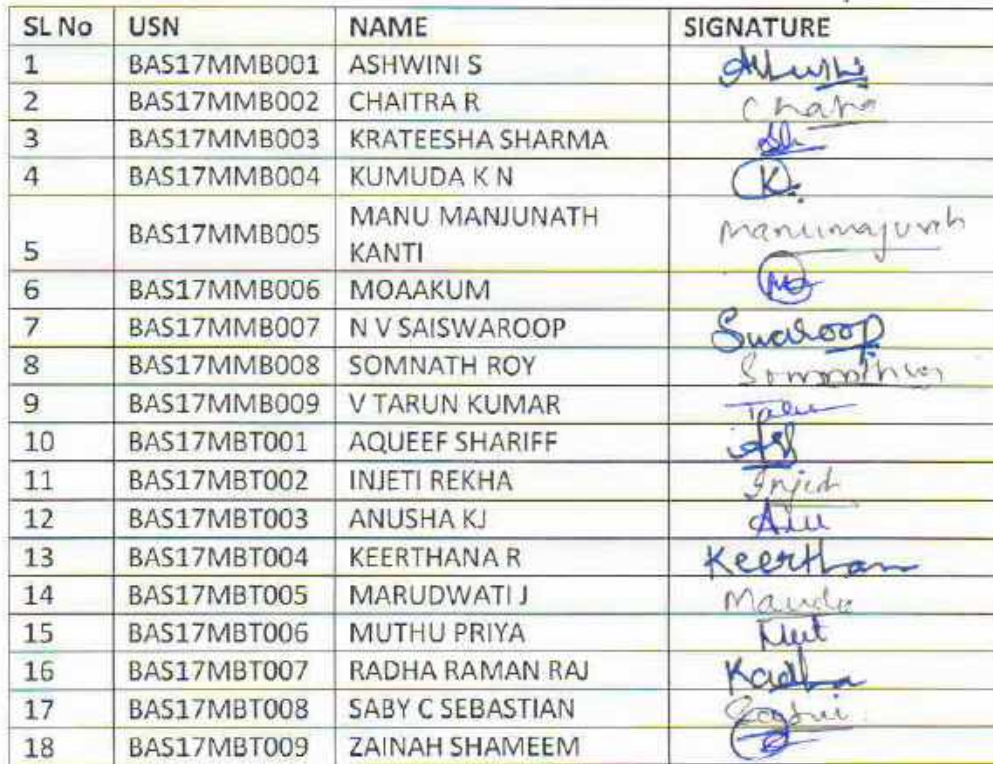 SL No USN NAME SIGNATURE
1 BAS17MMB001 ASHWINI S
2 BAS17MMB002 CHAITRA R
3 BAS17MMB003 KRATEESHA SHARMA
4 BAS17MMB004 KUMUDA K N K.
5 BAS17MMB005 MANU MANJUNATH
KANTI
6 BAS17MMB006 MOAAKUM
7 BAS17MMB007 N V SAISWAROOP Swaroop
8 BAS17MMB008 SOMNATH ROY
9 BAS17MMB009 V TARUN KUMAR
10 BAS17MBT001 AQUEEF SHARIFF
11 BAS17MBT002 INJETI REKHA
12 BAS17MBT003 ANUSHA KJ
13 BAS17MBT004 KEERTHANA R Keerthan
14 BAS17MBT005 MARUDWATI J
15 BAS17MBT006 MUTHU PRIYA Mut
16 BAS17MBT007 RADHA RAMAN RAJ
17 BAS17MBT008 SABY C SEBASTIAN
18 BAS17MBT009 ZAINAH SHAMEEM